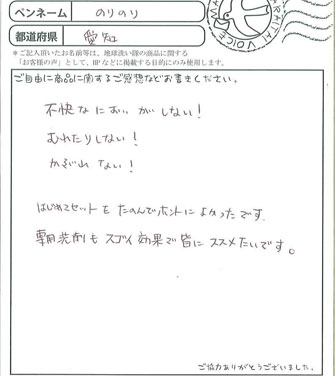 ペンネーム のりのり
都道府県 愛知
＊ご記入頂いたお名前等は、地球洗い隊の商品に関する
「お客様の声」として、HPなどに掲載する目的にのみ使用します。
ご自由に商品に関するご感想などお書きください。
不快なにおいがしない！
むれたりしない！
かぶれない！
はじめてセットをたのんでホントによかったです。
専用洗剤もスゴイ効果で皆にススメたいです。
ご協力ありがとうございました。
VOICE